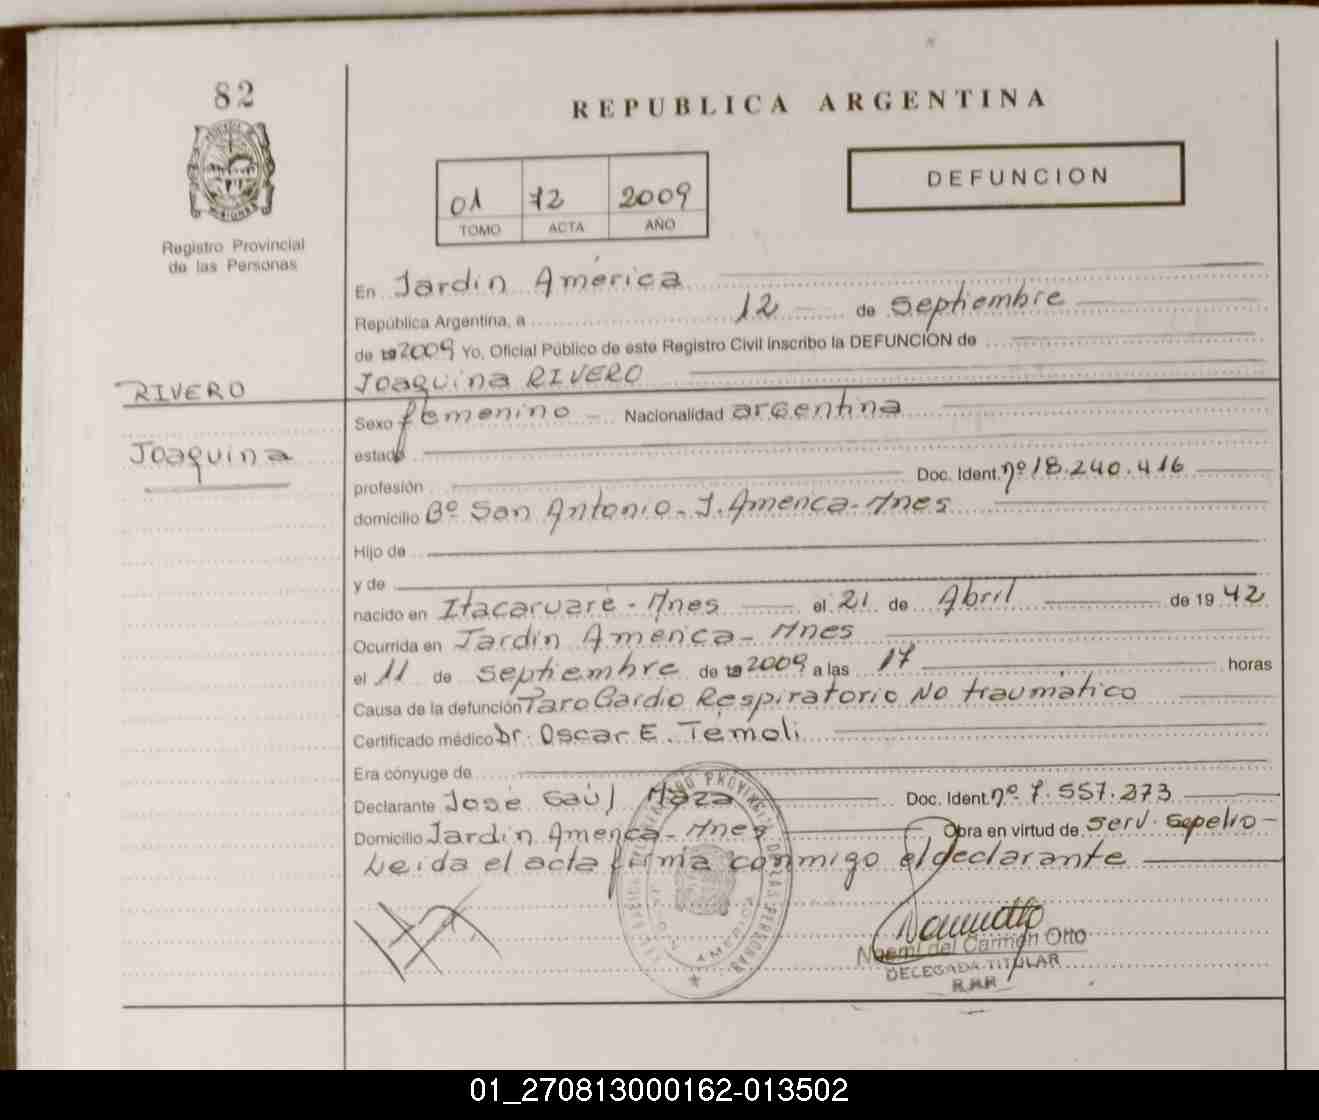 82
REPUBLICA ARGENTINA
01 72 2009
TOMO ACTA AÑO
DEFUNCION
Registro Provincial
de las Personas
En Jardin América
República Argentina, a 12 de septiembre
de 19 2009 Yo, Oficial Público de este Registro Civil inscribo la DEFUNCION de
RIVERO
Joaquina RIVERO
Sexo femenino Nacionalidad argentina
Joaquina
estado
profesión Doc. Ident. nº 18.240.416
domicilio Bº San Antonio - J. America - Mnes
Hijo de
y de
nacido en Itacaruaré - Mnes el 21 de Abril de 19 42
Ocurrida en Jardin America - Mnes
el 11 de septiembre de 19 2009 a las 17 horas
Causa de la defunción Paro Cardio Respiratorio No traumático
Certificado médico Dr. Oscar E. Temoli
Era cónyuge de
Declarante José Saúl Maza Doc. Ident. nº 7.557.273
Domicilio Jardin America - Mnes Obra en virtud de serv. sepelio -
Leida el acta firma conmigo el declarante
Noemi del Carmen Otto
DELEGADA TITULAR
01_270813000162-013502